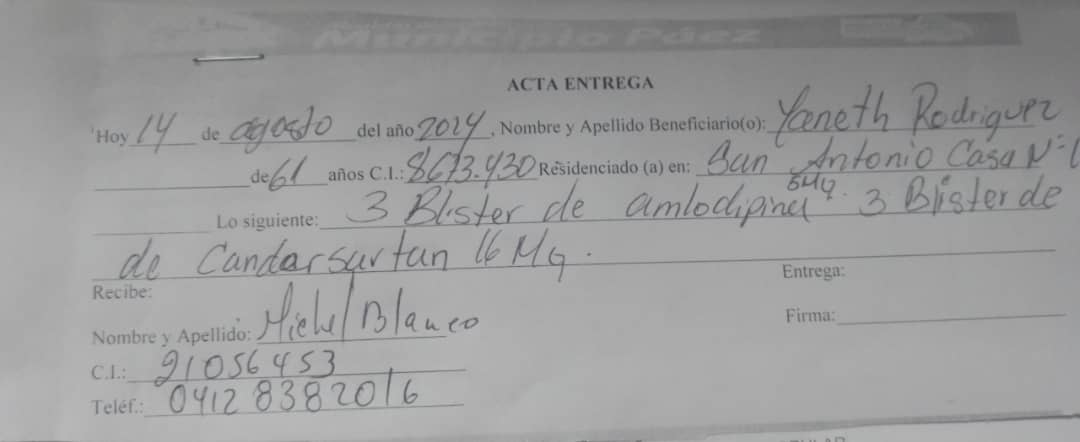 Municipio Páez
ACTA ENTREGA
Hoy 14 de agosto del año 2024, Nombre y Apellido Beneficiario(o): Yaneth Rodriguez
de 61 años C.I.: 8673.430 Residenciado (a) en: San Antonio Casa Nº
Lo siguiente: 3 Blister de amlodipina 5Mg. 3 Blister de
de Candarsartan 16 MG.
Recibe:
Entrega:
Nombre y Apellido: Michel Blanco
Firma:
C.I.: 21056453
Teléf.: 04128382016